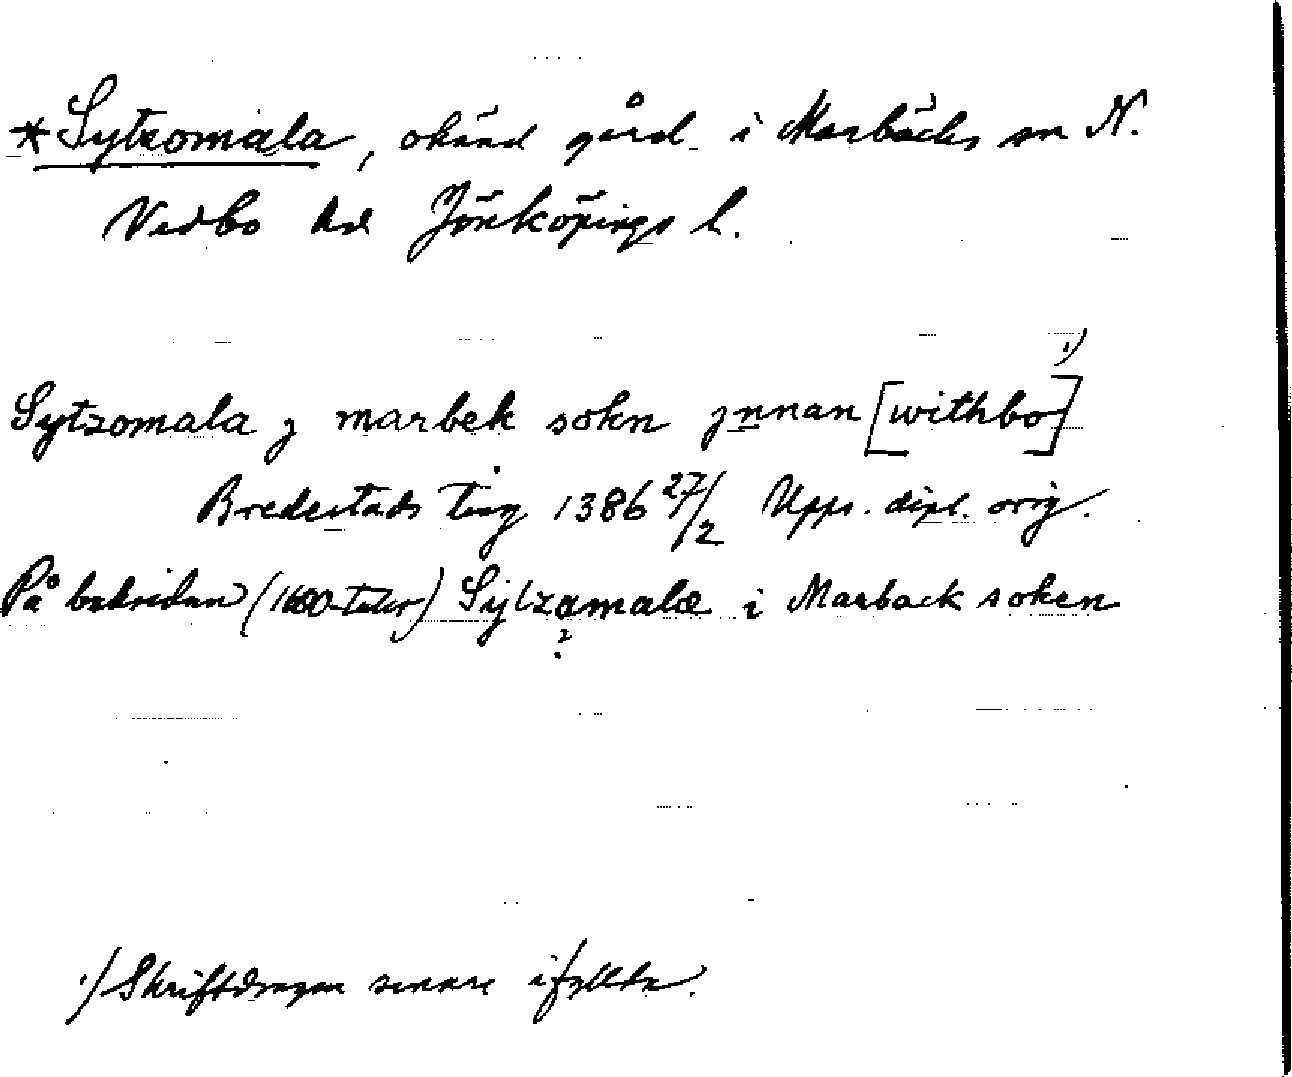 *Sytzomala, okänd gård i Marbäcks sn N.
Vedbo hd Jönköpings l.
Sytzomala j marbek sokn jnnan [withbo] 1)
Bredestads ting 1386 27/2 Upps. dipl. orig.
På baksidan (1600-talet) Sÿtzamalæ i Marback soken
?
1) Skriftdragen senare ifyllda.